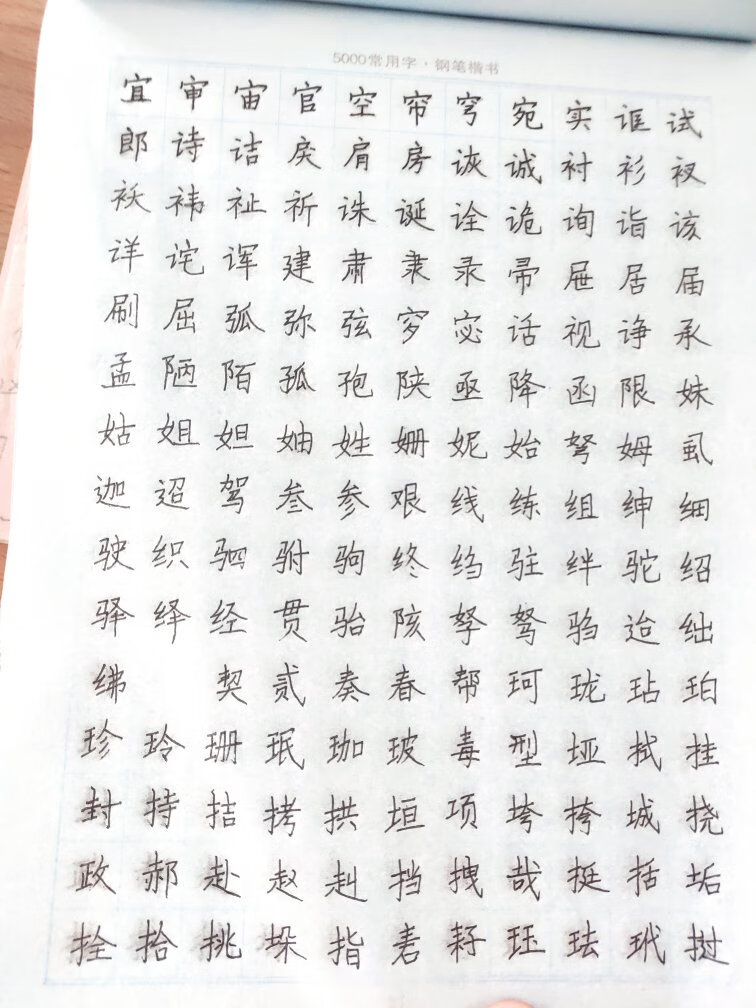 5000常用字·钢笔楷书
宜审宙官空帘穹宛实诓试
郎诗诘戾肩房诙诚衬衫衩
袄祎祉祈诛诞诠诡询诣该
详诧诨建肃隶录帚屉居届
刷屈弧弥弦穸宓话视诤承
孟陋陌孤孢陕亟降函限妹
姑姐妲妯姓姗妮始弩姆虱
迦迢驾叁参艰线练组绅细
驶织驷驸驹终绉驻绊驼绍
驿绎经贯骀陔孥驽驺迨绌
绋 契贰奏春帮珂珑玷珀
珍玲珊珉珈玻毒型垭拭挂
封持拮拷拱垣项垮挎城挠
政郝赴赵赳挡拽哉挺括垢
拴拾挑垛指砉耔珏珐玳挝